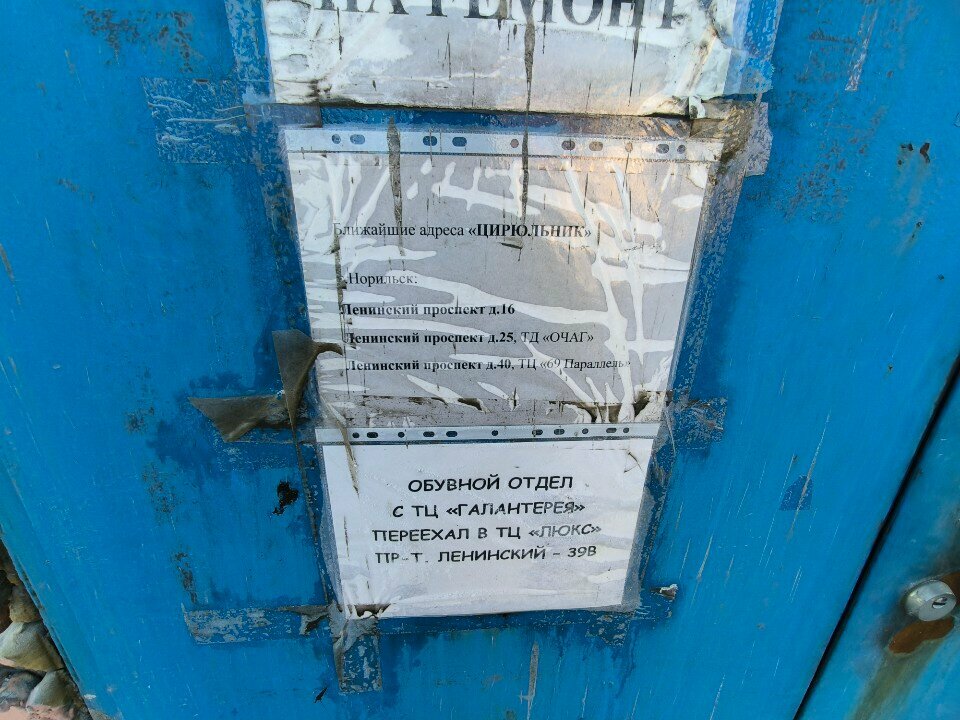 НА РЕМОНТ
Ближайшие адреса «ЦИРЮЛЬНИК»
г.Норильск:
Ленинский проспект д.16
Ленинский проспект д.25, ТД «ОЧАГ»
Ленинский проспект д.40, ТЦ «69 Параллель»
ОБУВНОЙ ОТДЕЛ
С ТЦ «ГАЛАНТЕРЕЯ»
ПЕРЕЕХАЛ В ТЦ «ЛЮКС»
ПР-Т. ЛЕНИНСКИЙ - 39В